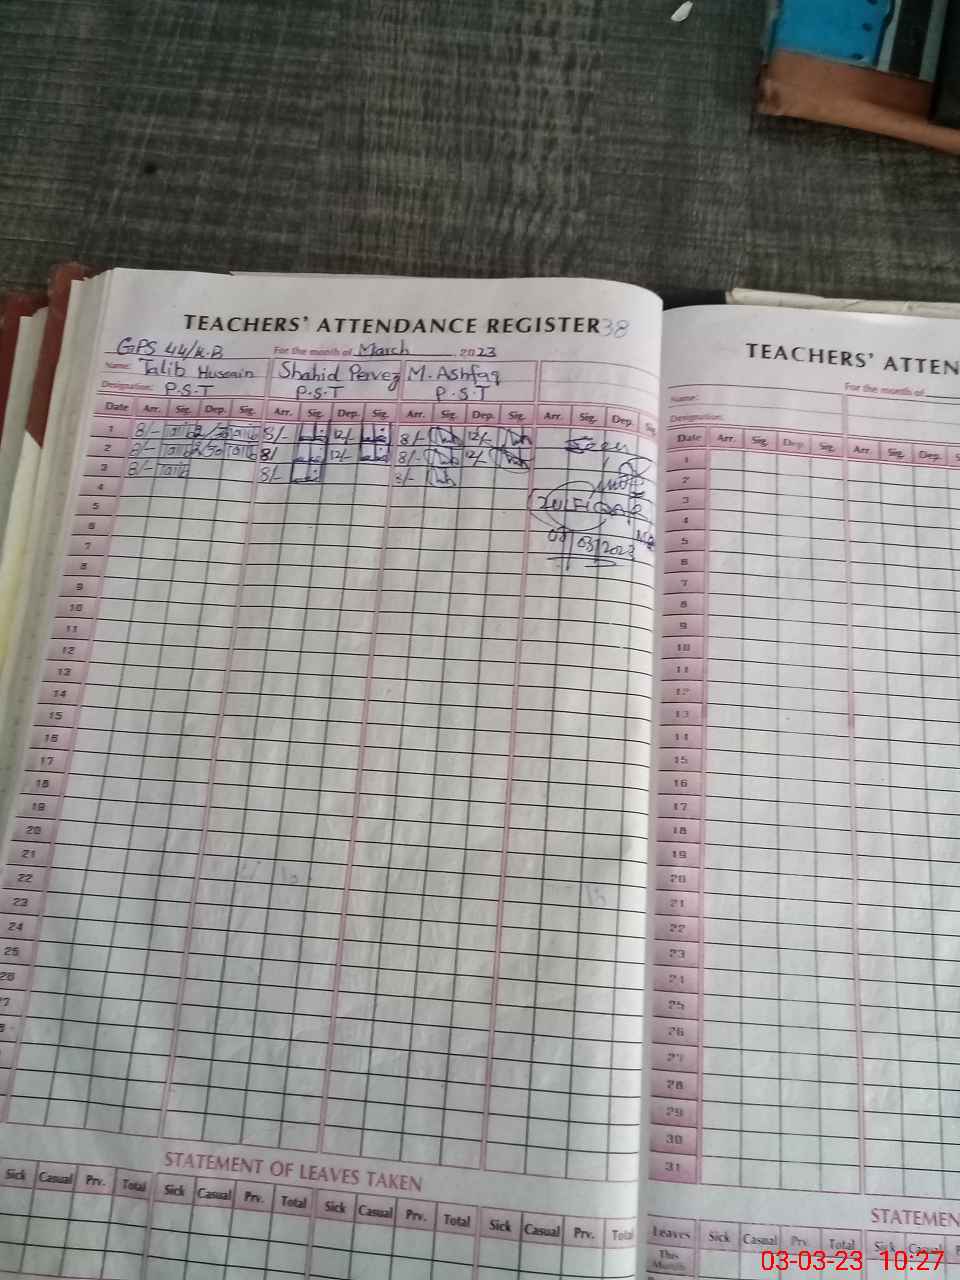 TEACHERS' ATTENDANCE REGISTER 38
GPS 44/K.B For the month of March 2023
Name: Talib Hussain Shahid Pervez M. Ashfaq
Designation: P.S.T P.S.T P.S.T
Date Arr. Sig. Dep. Sig. Arr. Sig. Dep. Sig. Arr. Sig. Dep. Sig. Arr. Sig. Dep. Sig.
1 8/- Talib 8/- 12/- 8/- 12/-
2 8/- Talib 8/ 12/- 8/- 12/-
3 8/- Talib 8/- 8/-
Seen
ZULFIQAR
03/03/2023
4
5
6
7
8
9
10
11
12
13
14
15
16
17
18
19
20
21
22
23
24
25
26
STATEMENT OF LEAVES TAKEN
Sick Casual Prv. Total Sick Casual Prv. Total Sick Casual Prv. Total Sick Casual Prv. Total
TEACHERS' ATTEN
For the month of
Name:
Designation:
Date Arr. Sig. Dep. Sig. Arr. Sig. Dep.
1
2
3
4
5
6
7
8
9
10
11
12
13
14
15
16
17
18
19
20
21
22
23
24
25
26
27
28
29
30
31
STATEMEN
Leaves Sick Casual Prv. Total Sick Casual
This Month
03-03-23 10:27